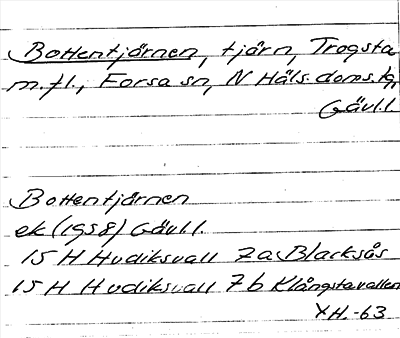 Bottentjärnen, tjärn, Trogsta
m.fl., Forsa sn, N Häls. doms.,
Gävl.l.
Bottentjärnen
ek (1958) Gävl.l.
15 H Hudiksvall 7a Blacksås
15 H Hudiksvall 7b Klångstavallen
H.-63